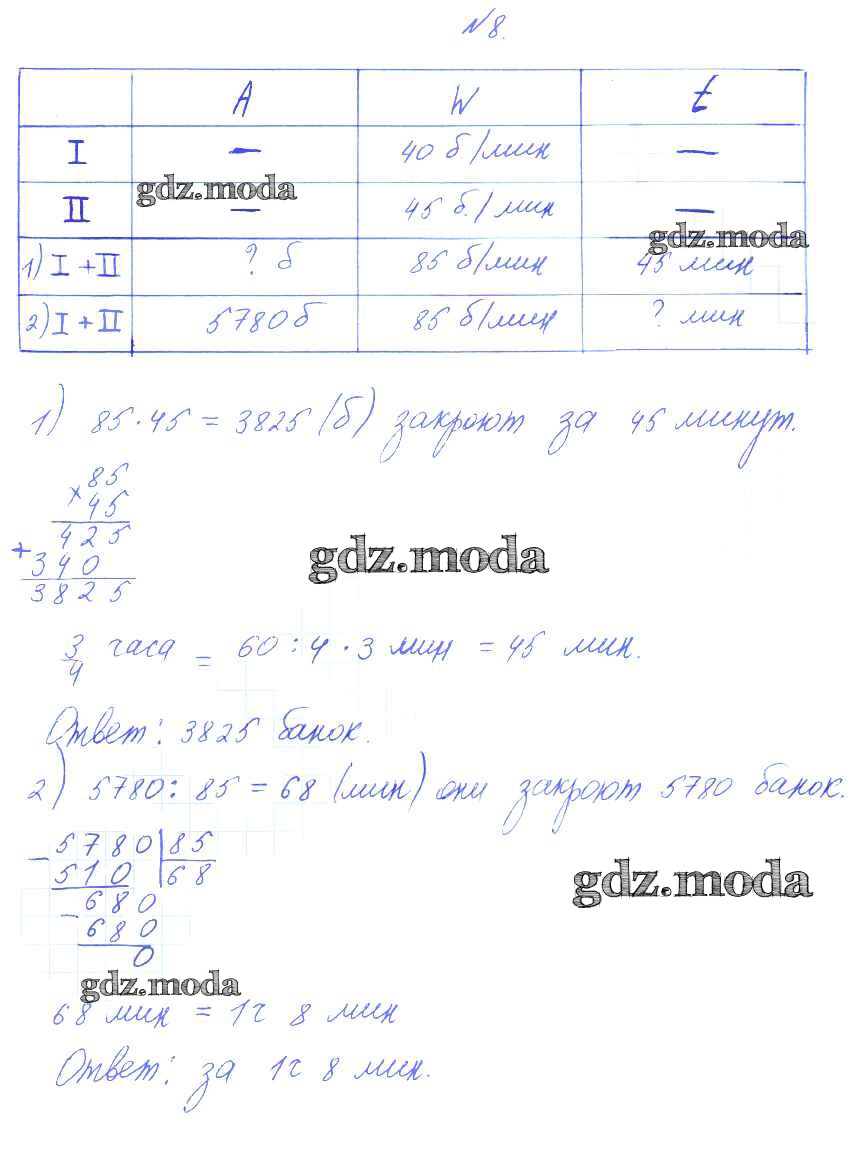 №8.
A W t
I — 40 б/мин —
gdz.moda
II — 45 б/мин —
gdz.moda
1) I + II ? б 85 б/мин 45 мин
2) I + II 5780 б 85 б/мин ? мин
1) 85·45 = 3825 (б) закроют за 45 минут.
× 85
45
425
+ 340
3825
gdz.moda
3/4 часа = 60 : 4 · 3 мин = 45 мин.
Ответ: 3825 банок.
2) 5780 : 85 = 68 (мин) они закроют 5780 банок.
– 5780 | 85
510 68
– 680
680
0
gdz.moda
gdz.moda
68 мин = 1ч 8 мин
Ответ: за 1ч 8 мин.